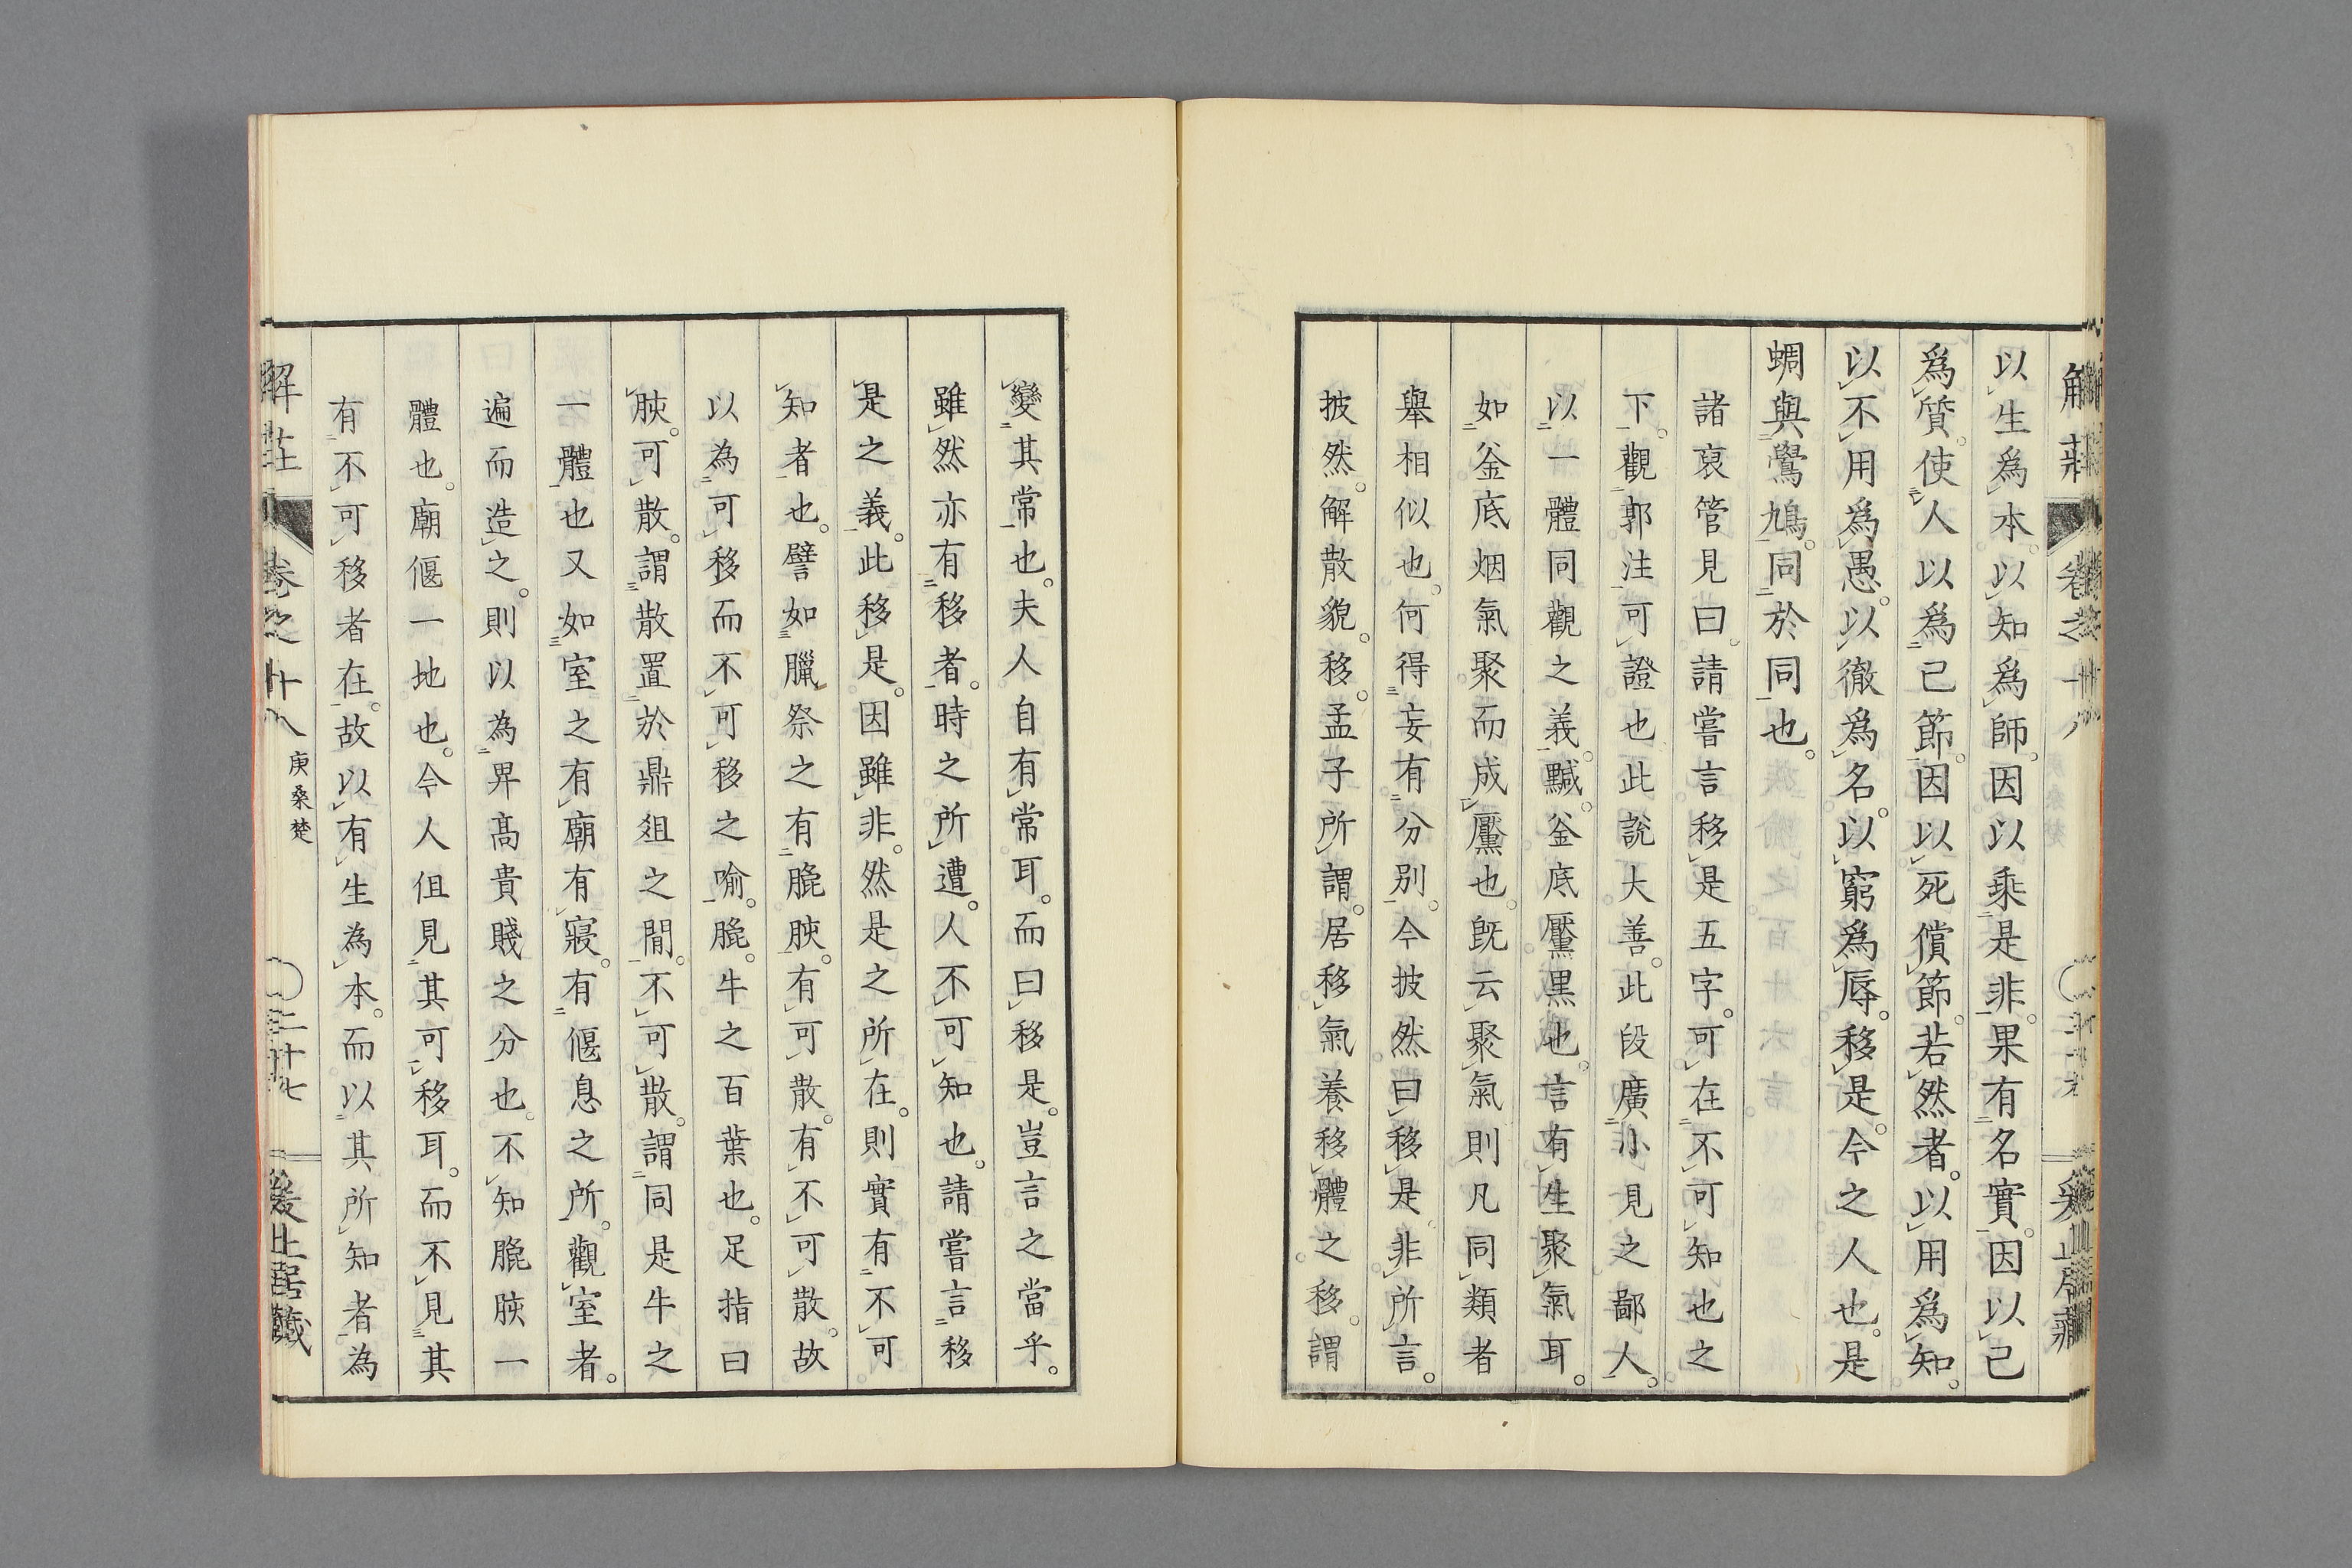 以生爲本。以知爲師。因以乘是非。果有名實。因以己
爲質。使人以爲己節。因以死償節。若然者。以用爲知。
以不用爲愚。以徹爲名。以窮爲辱。移是。今之人也。是
蜩與鷽鳩。同於同也。
諸裒管見曰。請嘗言移是五字。可在不可知也之
下。觀郭注可證也此說大善。此段廣小見之鄙人。
以一體同觀之義。黬。釜底黶黒也。言有生聚氣耳。
如釜底烟氣聚而成黶也。既云聚氣則凡同類者
舉相似也。何得妄有分別。今披然曰移是非所言。
披然。解散貌。移。孟子所謂。居移氣養移體之移。謂
變其常也。夫人自有常耳。而曰移是。豈言之當乎。
雖然亦有移者。時之所遭。人不可知也。請嘗言移
是之義。此移是。因雖非。然是之所在。則實有不可
知者也。譬如臘祭之有膍胲。有可散。有不可散。故
以為可移而不可移之喻。膍。牛之百葉也。足指曰
胲。可散。謂散置於鼎俎之閒。不可散。謂同是牛之
一體也又如室之有廟有寢。有偃息之所。觀室者。
遍而造之。則以為昇高貴賤之分也。不知膍胲一
體也。廟偃一地也。今人但見其可移耳。而不見其
有不可移者在。故以有生為本。而以其所知者為
解莊 卷之十八 庚桑楚 〇二十七